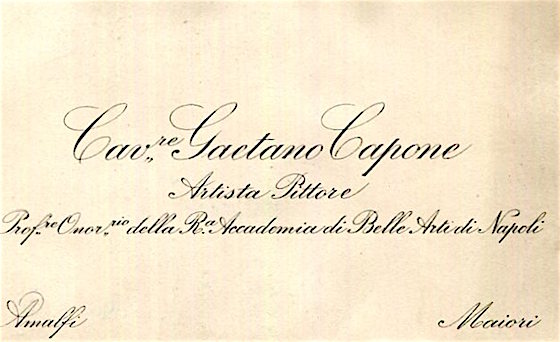 Cav.re Gaetano Capone
Artista Pittore
Prof.re Onor.rio della R.a Accademia di Belle Arti di Napoli
Amalfi
Maiori